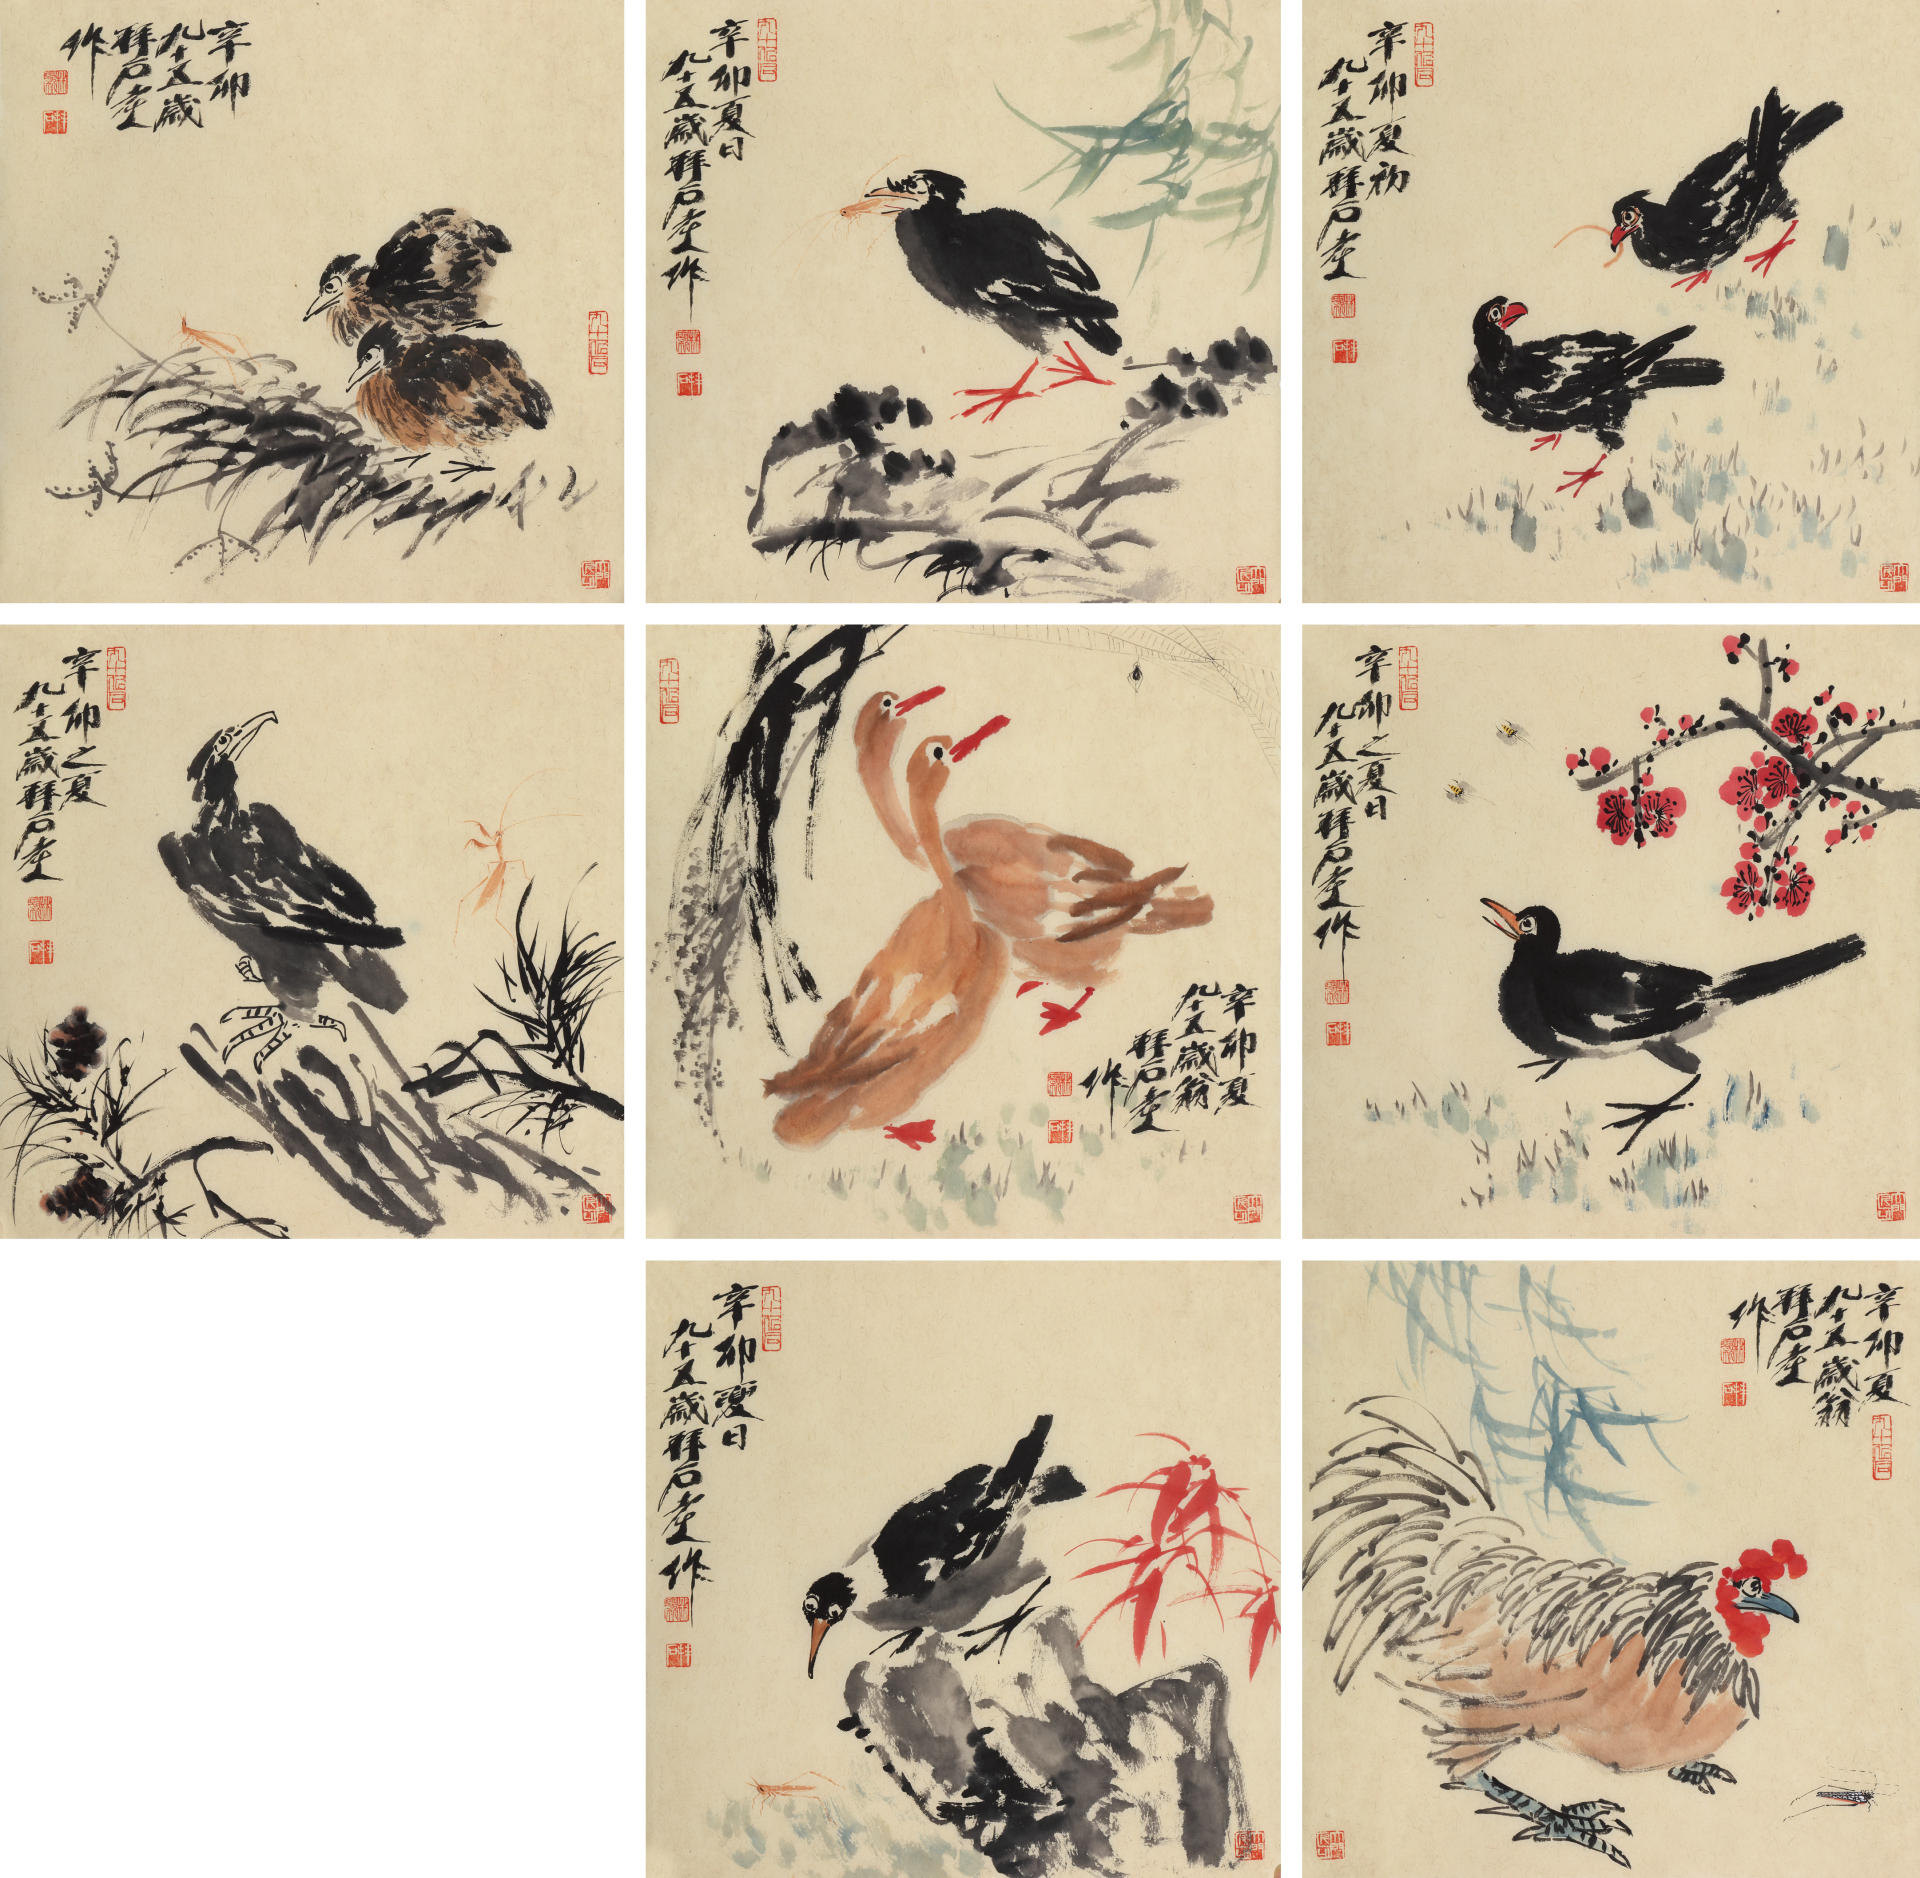 辛卯
九十五歲
拜石老人
作
辛卯夏日
九十五歲拜石老人作
辛卯夏初
九十五歲拜石老人
辛卯之夏
九十五歲拜石老人
辛卯夏
九十五歲翁
拜石老人
作
辛卯之夏日
九十五歲拜石老人作
辛卯夏日
九十五歲拜石老人作
辛卯夏
九十五歲翁
拜石老人
作